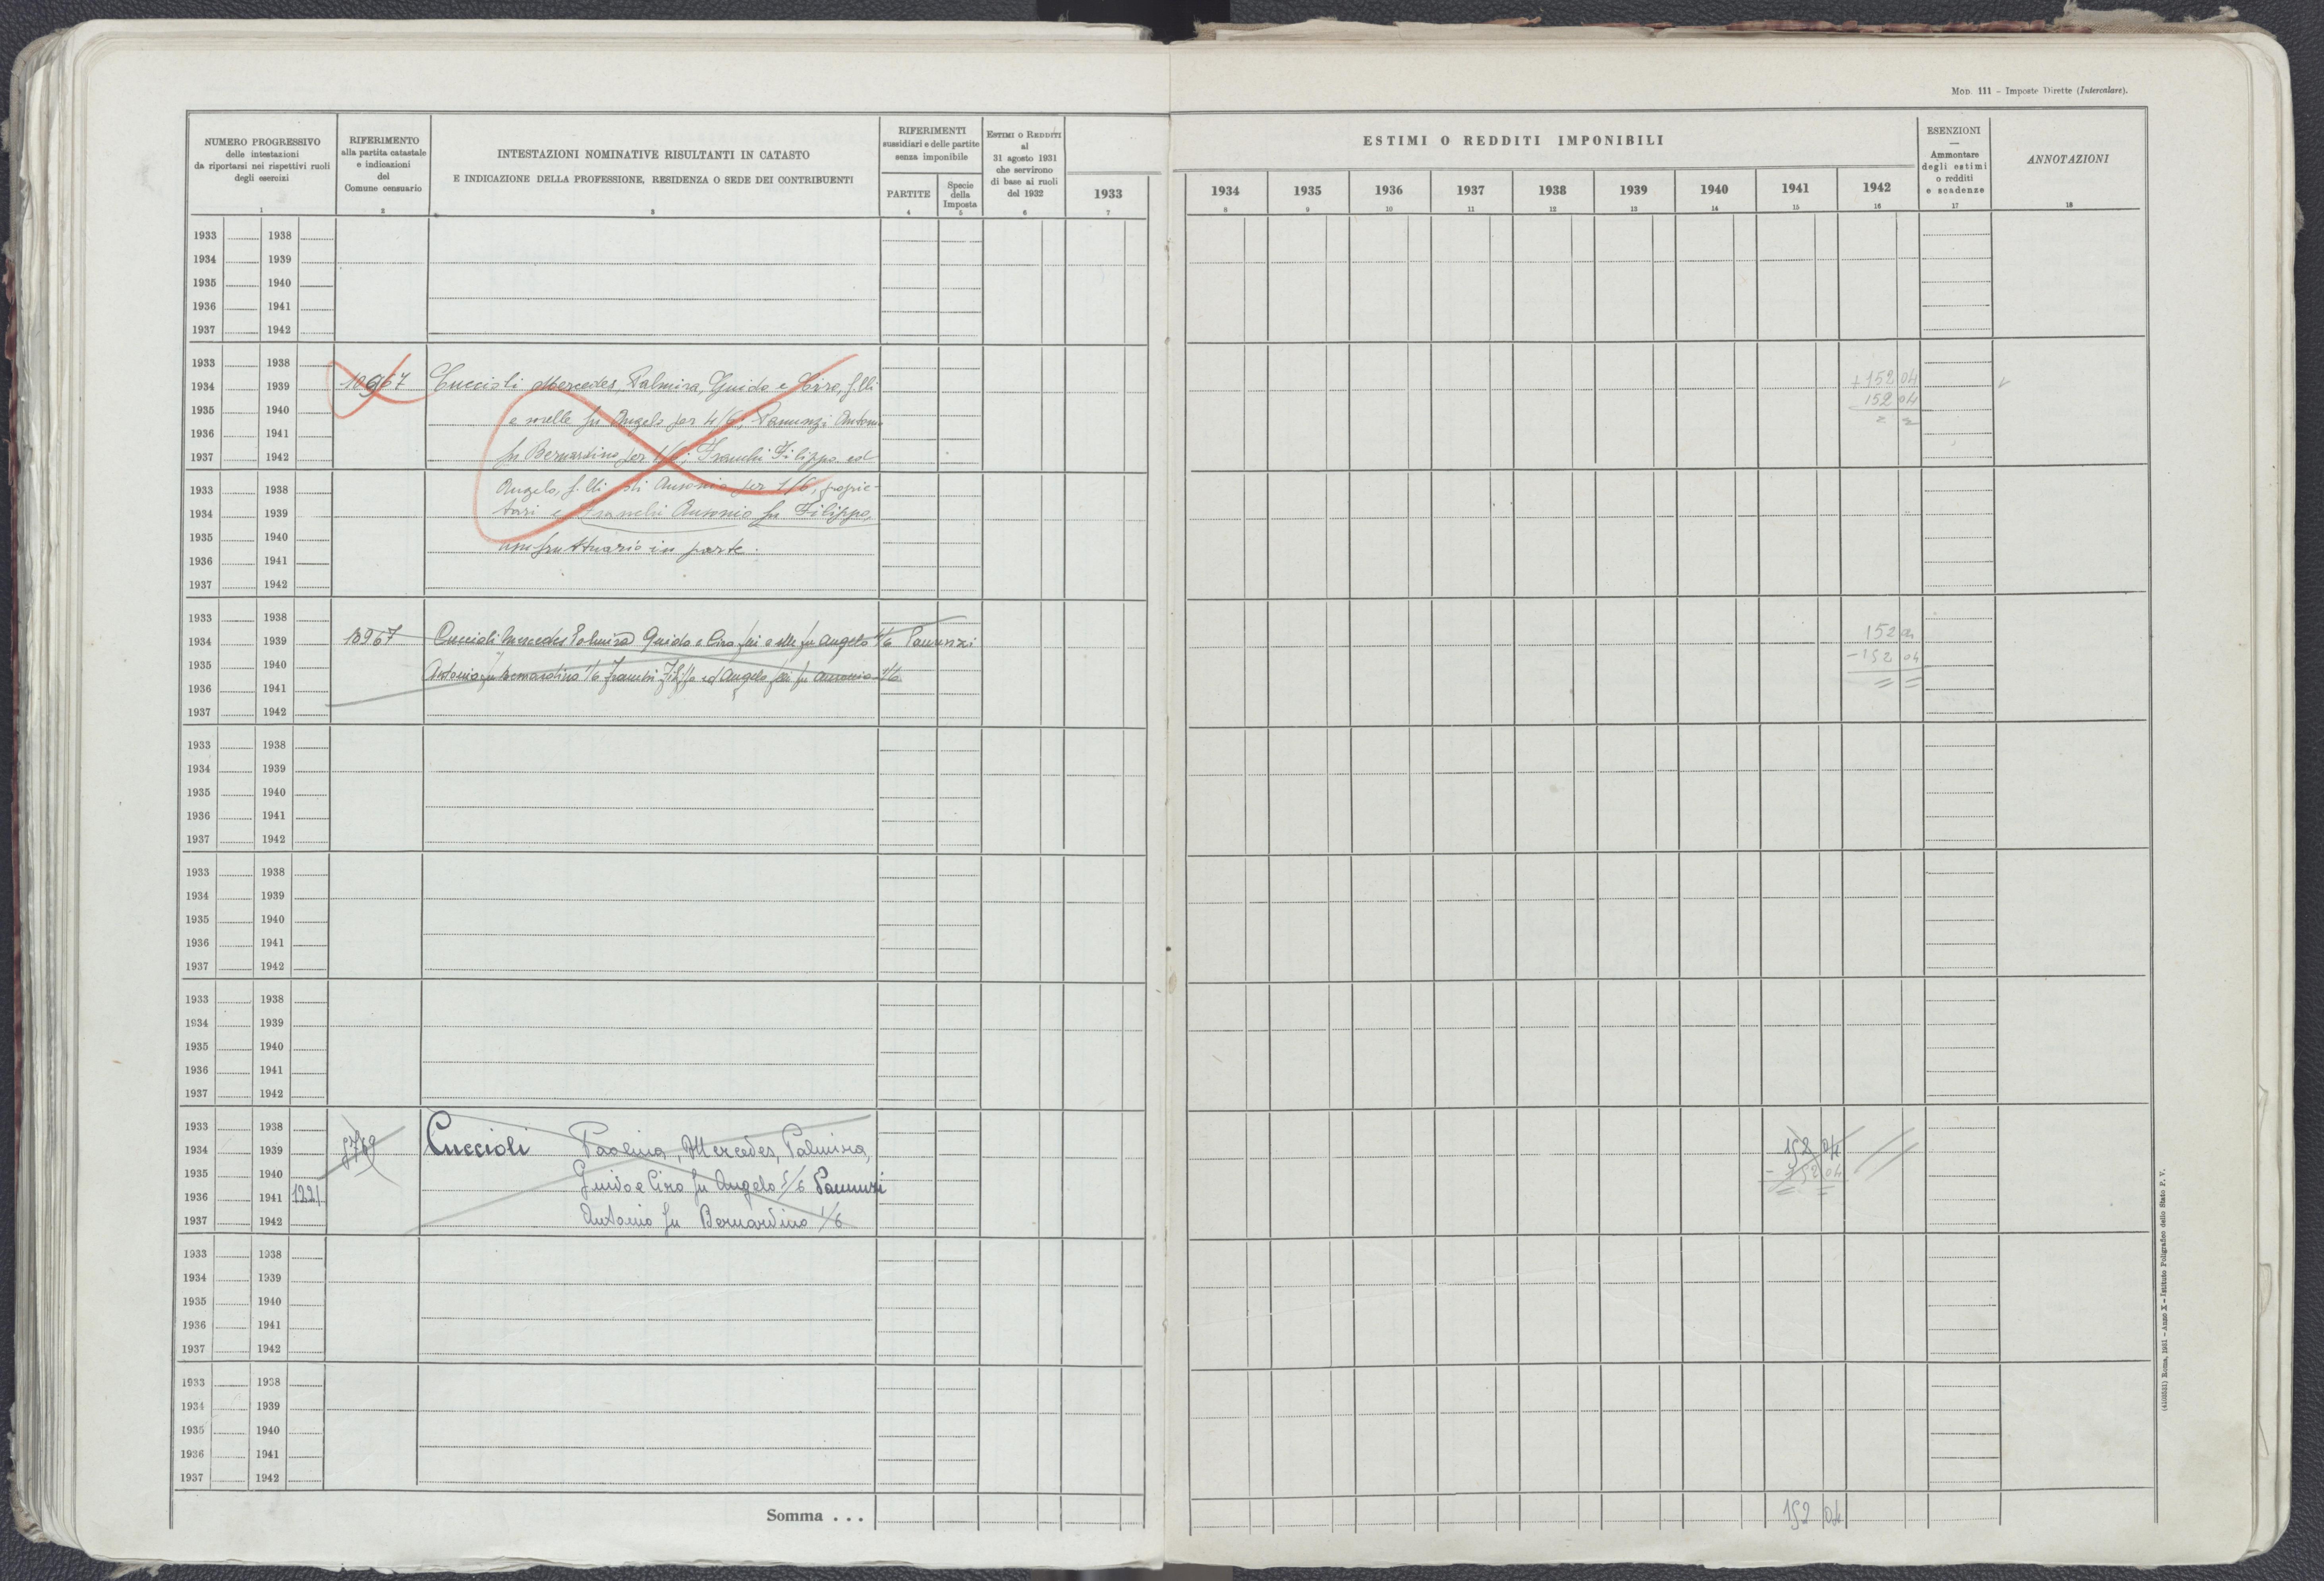 MOD. 111 - Imposte Dirette (Intercalare).
NUMERO PROGRESSIVO
delle intestazioni
da riportarsi nei rispettivi ruoli
degli esercizi
1
RIFERIMENTO
alla partita catastale
e indicazioni
del
Comune censuario
2
INTESTAZIONI NOMINATIVE RISULTANTI IN CATASTO
E INDICAZIONE DELLA PROFESSIONE, RESIDENZA O SEDE DEI CONTRIBUENTI
3
RIFERIMENTI
sussidiari e delle partite
senza imponibile
PARTITE
4
Specie
della
Imposta
5
ESTIMI O REDDITI
al
31 agosto 1931
che servirono
di base ai ruoli
del 1932
6
1933
7
ESTIMI O REDDITI IMPONIBILI
1934 1935 1936 1937 1938 1939 1940 1941 1942
8 9 10 11 12 13 14 15 16
ESENZIONI
—
Ammontare
degli estimi
o redditi
e scadenze
17
ANNOTAZIONI
18
1933 1938
1934 1939
1935 1940
1936 1941
1937 1942
1933 1938
1934 1939 10967 Cuccioli Mercedes, Palmira, Guido e Ciro, f.lli + 152 04
1935 1940 e sorelle fu Angelo per 4/6, Panunzi Antonio 152 04
1936 1941 fu Bernardino per 1/6, Franchi Filippo ed
1937 1942
1933 1938 Angelo, f.lli di Ausonio per 1/6, proprie-
1934 1939 tari e Franchi Ausonio fu Filippo,
1935 1940 usufruttuario in parte.
1936 1941
1937 1942
1933 1938
1934 1939 10967 Cuccioli Mercedes Palmira Guido e Ciro fu Angelo 4/6 Panunzi 152 04
1935 1940 Antonio fu Bernardino 1/6 Franchi Filippo ed Angelo fu Ausonio 1/6 -152 04
1936 1941
1937 1942
1933 1938
1934 1939
1935 1940
1936 1941
1937 1942
1933 1938
1934 1939
1935 1940
1936 1941
1937 1942
1933 1938
1934 1939
1935 1940
1936 1941
1937 1942
1933 1938
1934 1939 8769 Cuccioli Paolina, Mercedes, Palmira, 152 04
1935 1940 Guido e Ciro fu Angelo 5/6 Panunzi - 152 04
1936 1941 1221
1937 1942 Antonio fu Bernardino 1/6
1933 1938
1934 1939
1935 1940
1936 1941
1937 1942
1933 1938
1934 1939
1935 1940
1936 1941
1937 1942
Somma . . . 152 04
(4103531) Roma, 1931 - Anno X - Istituto Poligrafico dello Stato P. V.